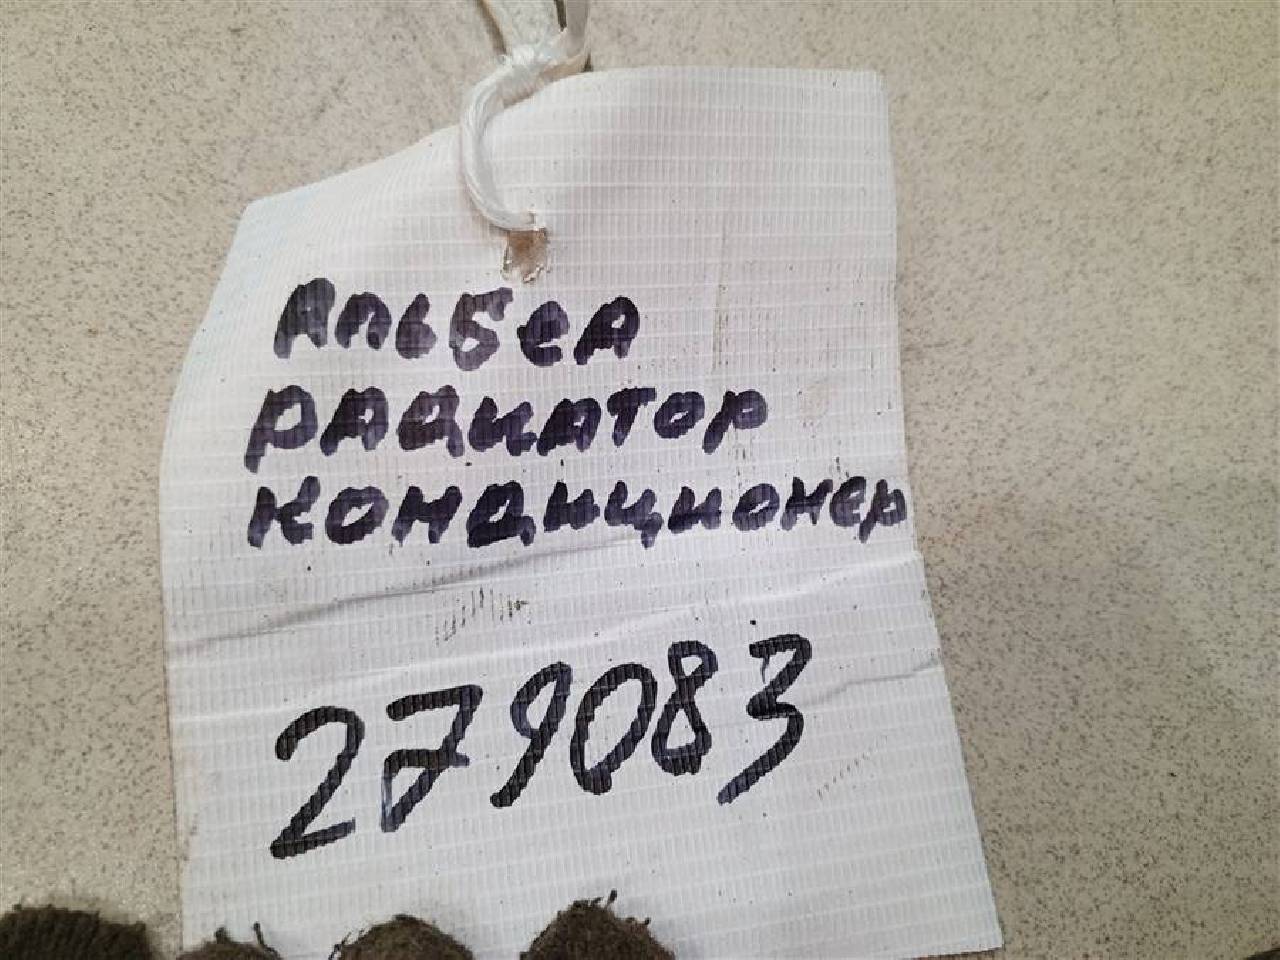 Альбеа
радиатор
кондиционер
279083